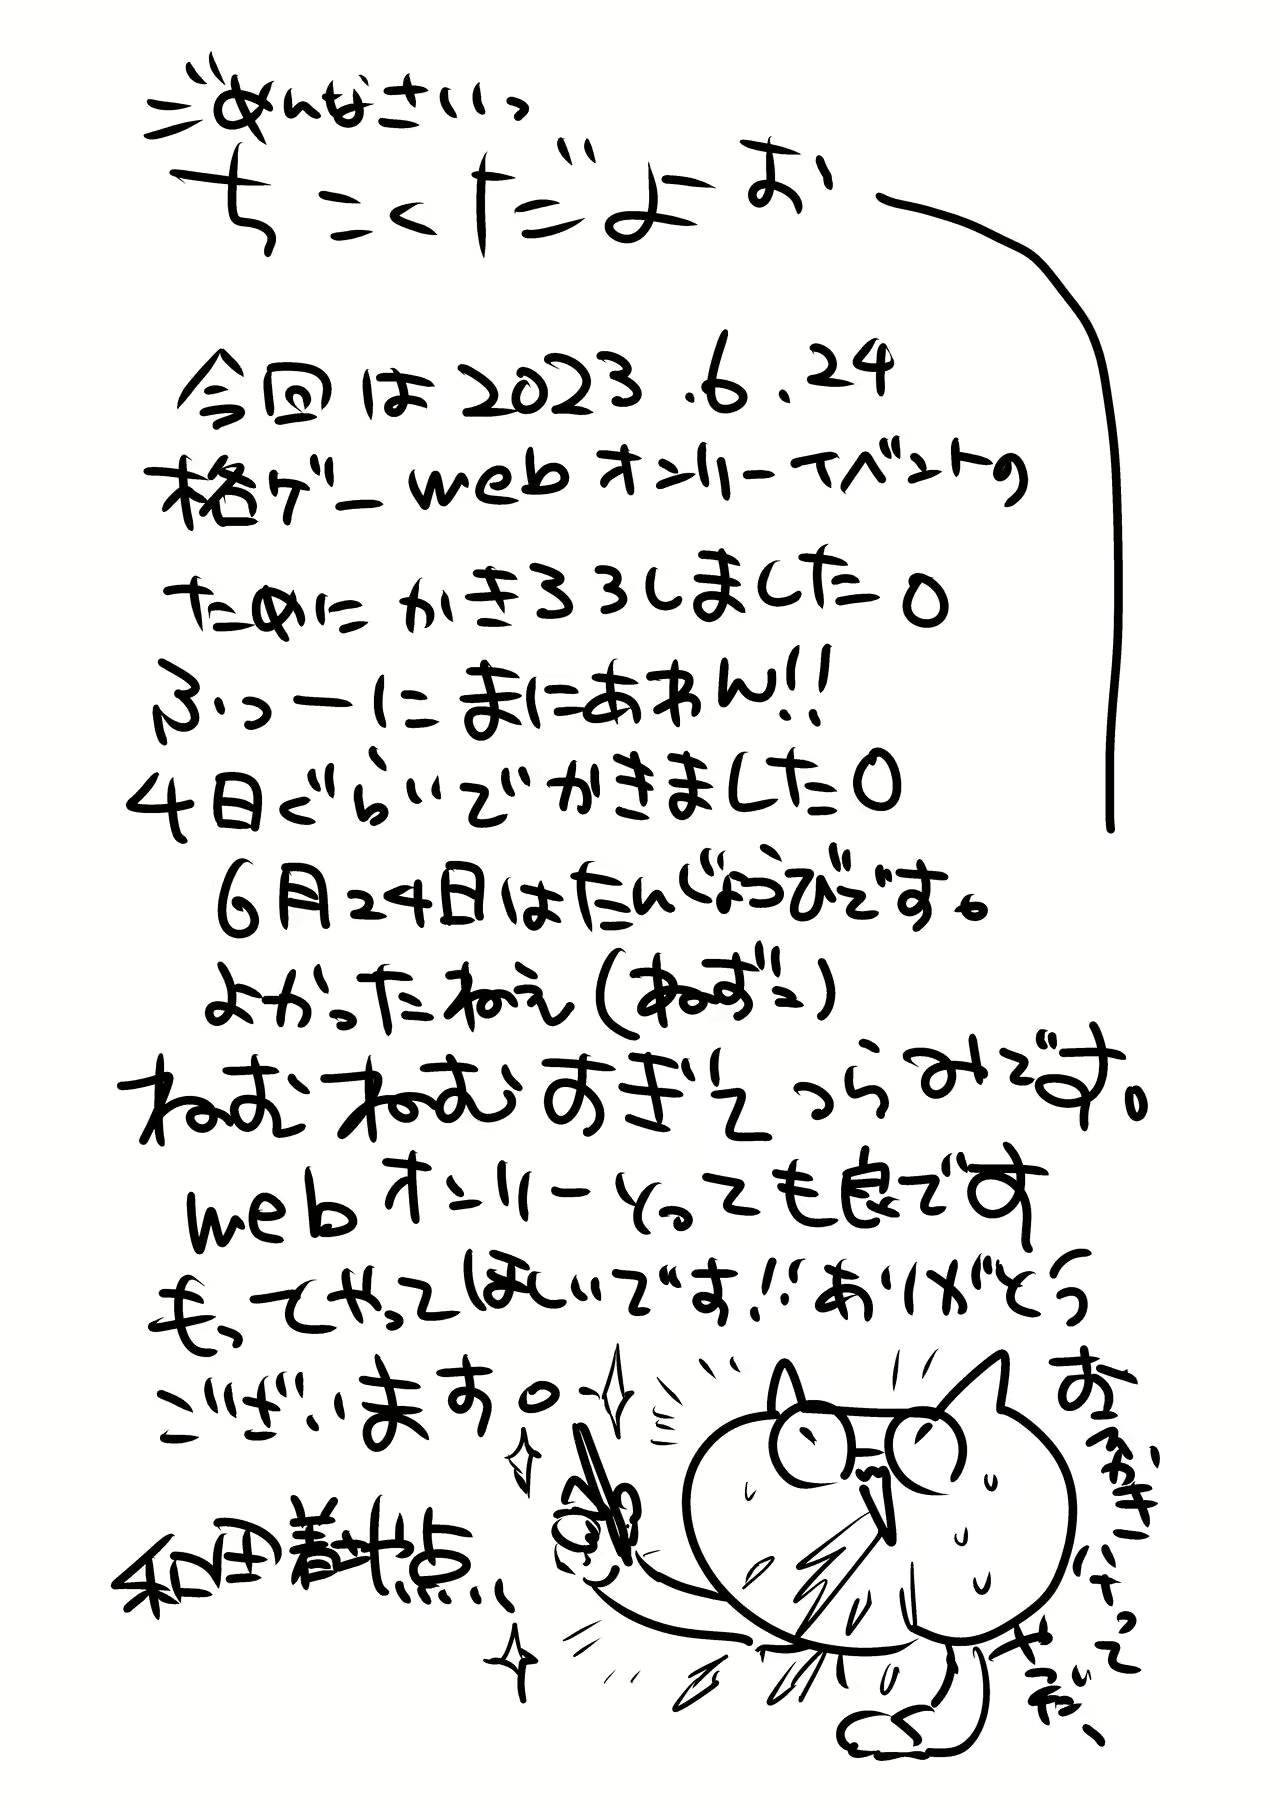 ごめんなさいっ
ちこくだよお
今回は2023.6.24
格ゲーwebオンリーイベントの
ためにかきろろしました。
ふつーにまにあわん!!
4日ぐらいでかきました。
6月24日はたんじょうびです。
よかったねえ(ねずこ)
ねむねむすぎてつらみです。
webオンリーとっても良です
もってやってほしいです!!ありがとう
ございます。
和田着